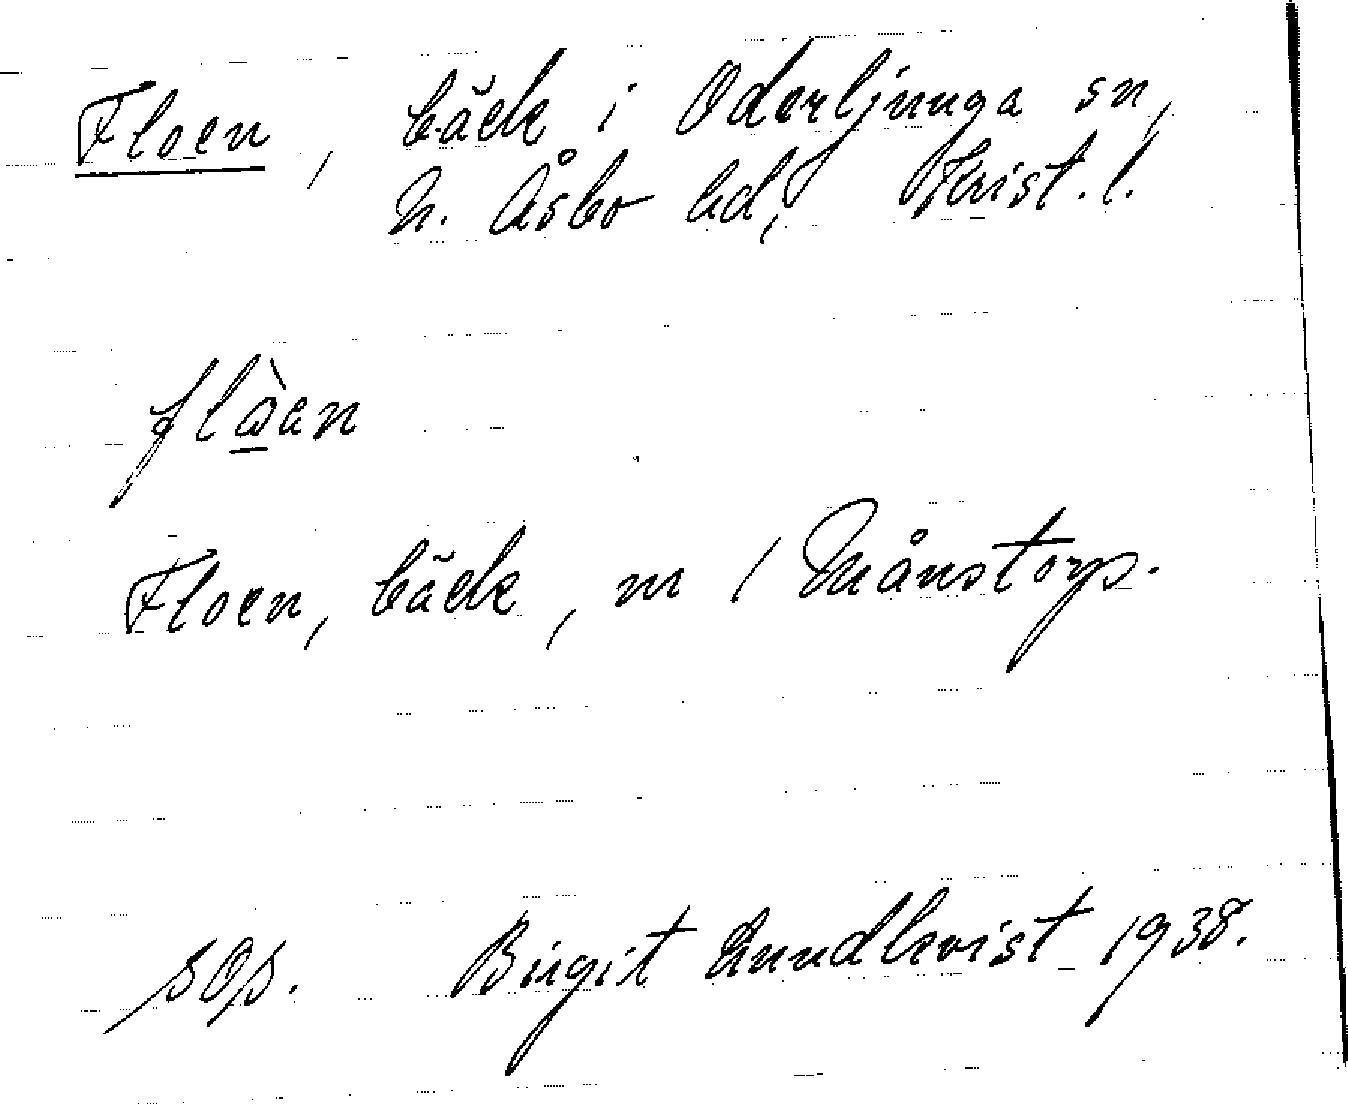 Floen, bäck i Oderljunga sn,
N. Åsbo hd, Krist. l.
flὼen
Floen, bäck, m / Månstorp.
sOp. Birgit Lundkvist 1938.